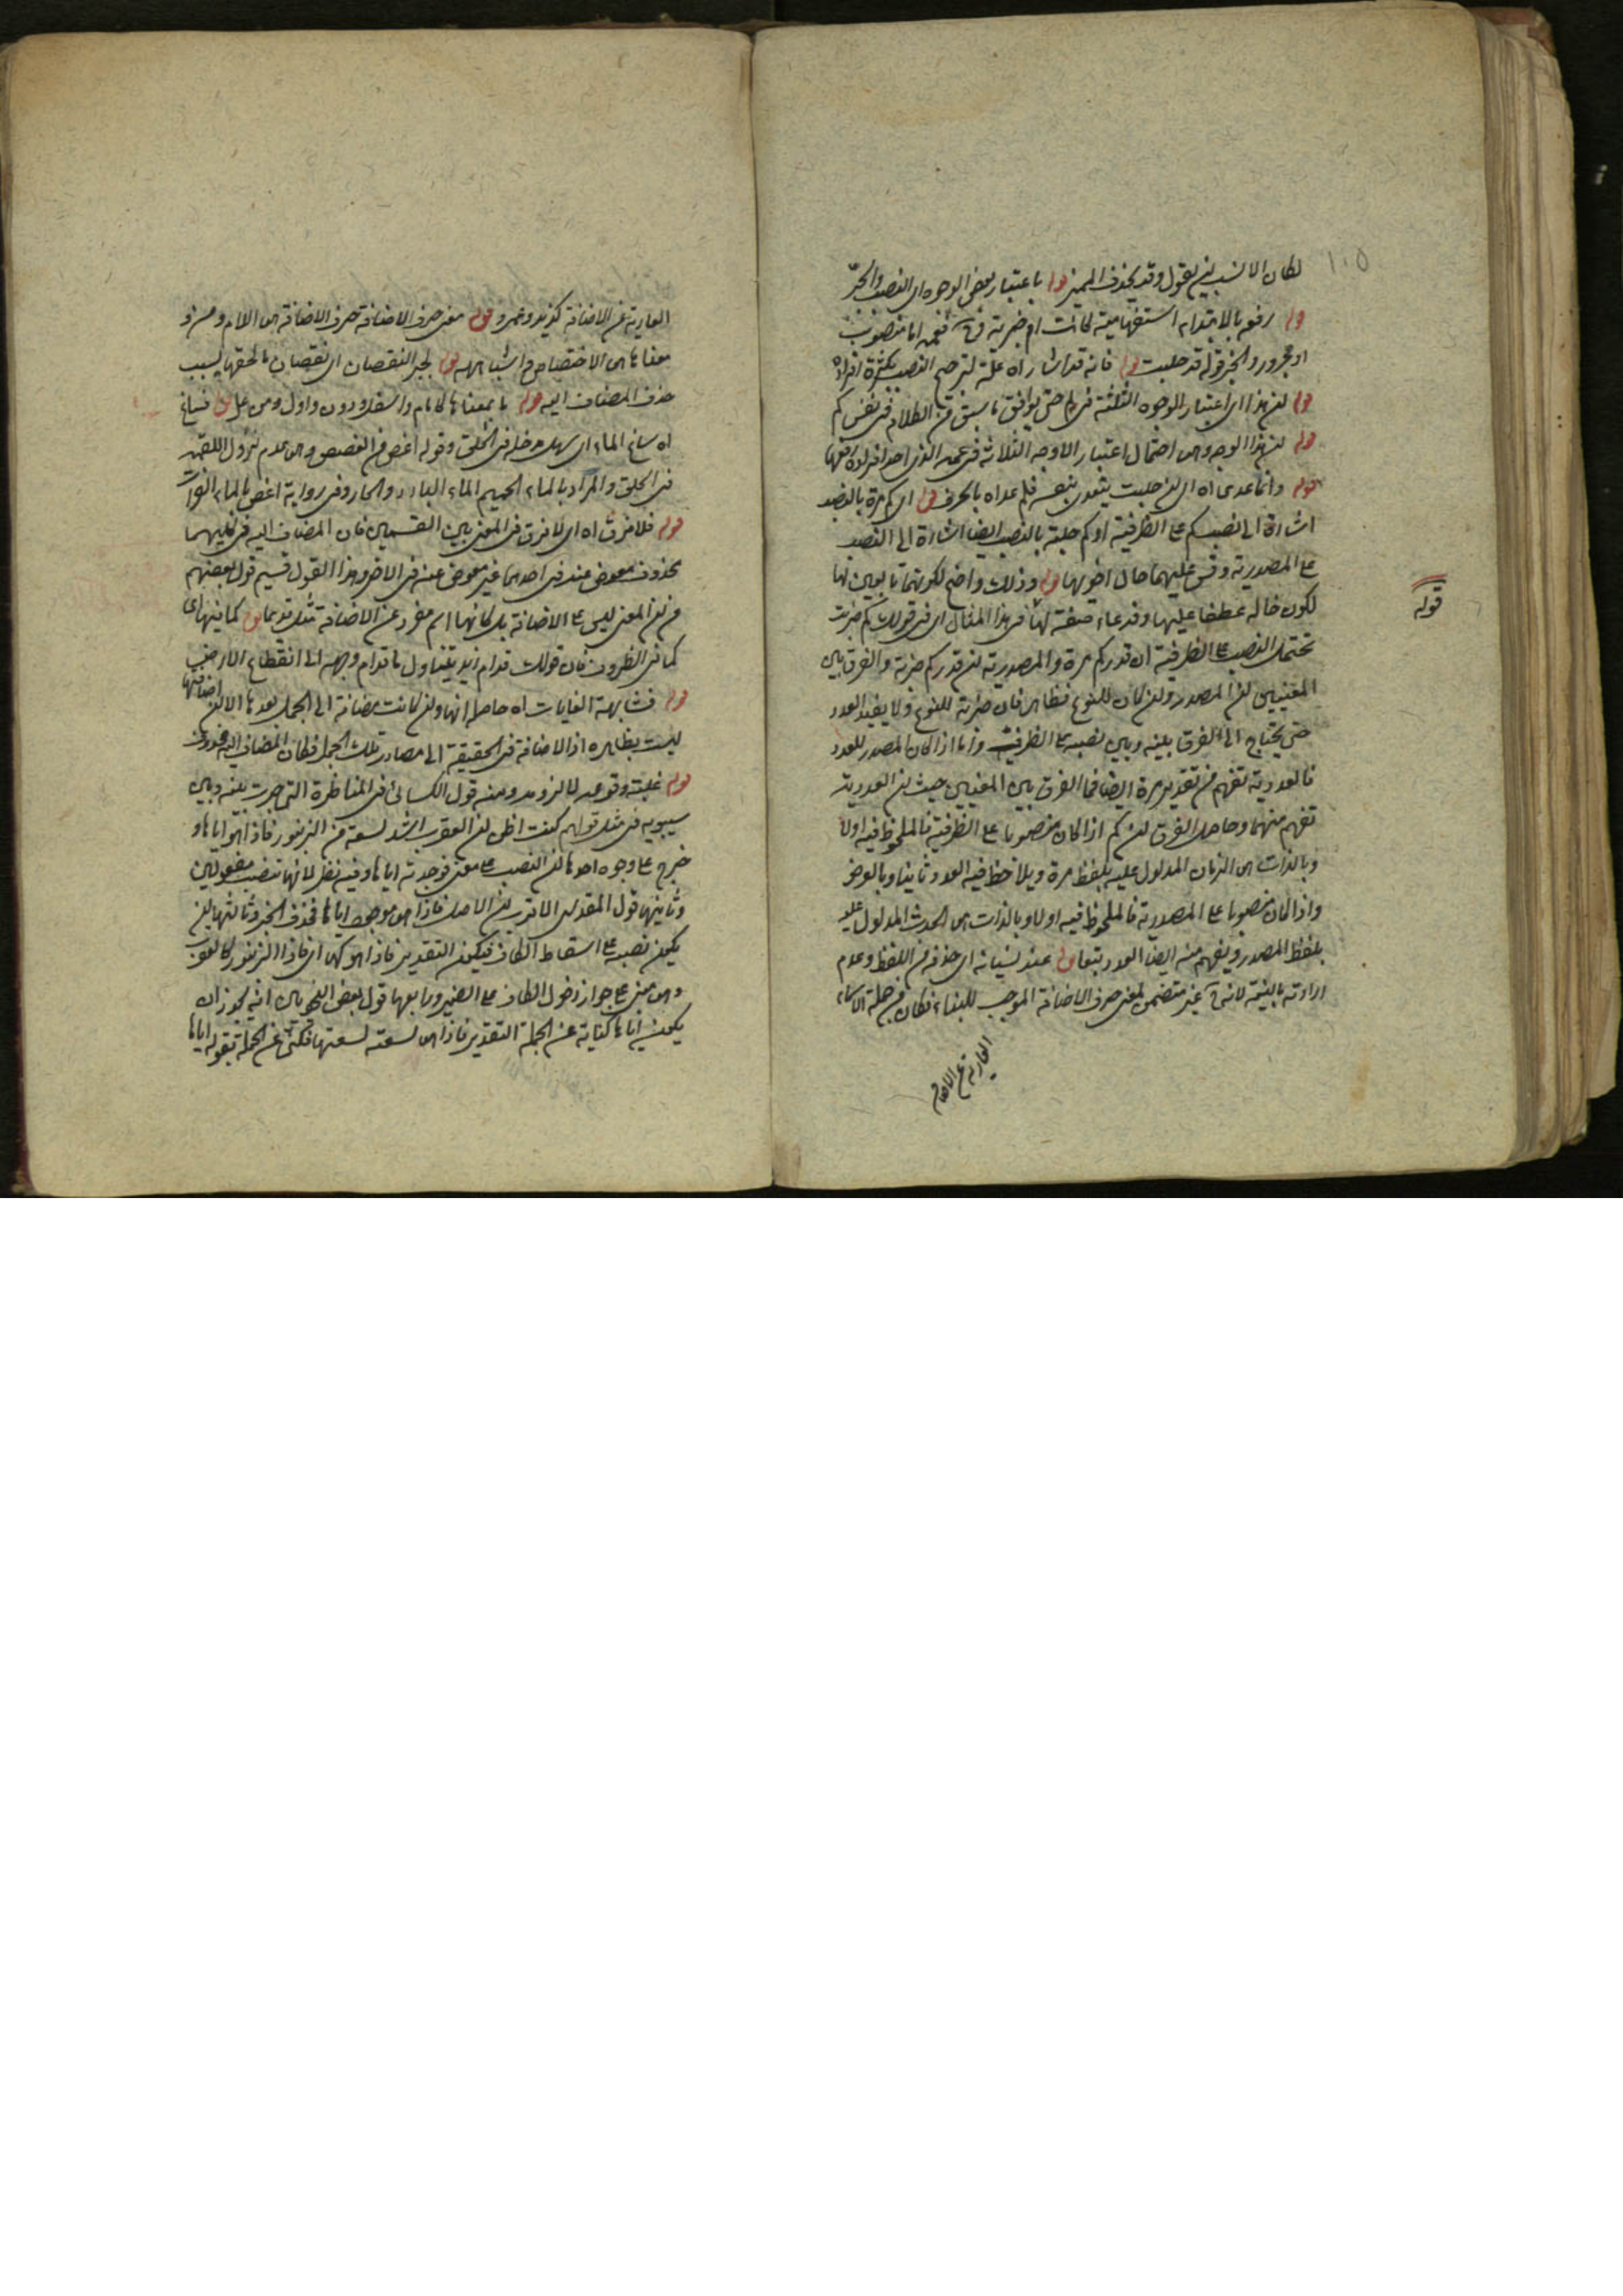 ١٠٥
لكان الانسب ان يقول وقد يحذف المميز قوله باعتبار بعض الوجوه اى النصب والجر
قوله رفعه بالابتداء استفهامية كانت او خبرية فعمه اما منصوب
او مجرور والخبر قوله قد حلبت قوله فانه قد اشار اه علة لترجيح النصب بكثرة افراده
قوله ان هذا اى اعتبار الوجوه الثلثة فى حتى يوافق ما سبق من الكلام فى نفس كم
قوله ان هذا الوجه وهى احتمال اعتبار الاوجه الثلاثة فى عمه الذى احد افراده
قوله وانما عدى اه اى ان حلبت يتعدى بنفسه فلم عداه بالحرف قوله اى كم مرة بالنصب
اشارة الى نصب كم على الظرفية او كم حلبة بالنصب ايضا اشارة الى النصب
على المصدرية وقس عليهما حال اخويها قوله وذلك واضح لكونهما تابعين لها
لكون خالة عطفا عليها وفدعاء صفة لها فى هذا المثال اى فى قولك كم ضربت
قوله
تحتمل النصب على الظرفية ان قدر كم مرة والمصدرية ان قدر كم ضربة والفرق بين
المعنيين ان المصدر وان كان للنوع فظاهر فان ضربة للنوع ولا يفيد العدد
حتى يحتاج الى الفرق بينه وبين نصبه على الظرفية واما اذا كان المصدر للعدد
فالعددية تفهم من تقدير مرة ايضا فما الفرق بين المعنيين حيث ان العددية
تفهم منهما وحاصل الفرق ان كم اذا كان منصوبا على الظرفية فالملحوظ فيه اولا
وبالذات هى الزمان المدلول عليه بلفظ مرة ويلاحظ فيه العدد ثانيا وبالعرض
واذا كان منصوبا على المصدرية فالملحوظ فيه اولا وبالذات هى الحدث المدلول عليه
بلفظ المصدر ويفهم منه ايضا العدد تبعا قوله عند نسيانه اى حذفه من اللفظ وعدم
ارادته بالنية لانه غير متضمن لمعنى حرف الاضافة الموجب للبناء فكان من جملة الاسماء
العارية عن الاضافة
العارية عن الاضافة كزيد وعمرو قوله معنى حرف الاضافة حرف الاضافة هى اللام ومن و
معناها هى الاختصاص واشباهه قوله لجبر النقصان اى نقصان ما لحقها بسبب
حذف المضاف اليه قوله ما بمعناها كامام واسفل ودون واول ومن عل قوله فساغ
اه ساغ الماء اى سهل مدخله فى الحلق وقوله اغص من الغصص وهى عدم نزول اللقمة
فى الحلق والمراد بالماء الحميم الماء البارد والحار وفى رواية اغص بالماء الفرات
قوله فلا فرق اه اى لا فرق فى المعنى بين القسمين فان المضاف اليه فى كليهما
محذوف معوض عنه فى احدهما غير معوض عنه فى الاخر وهذا القول قسيم قول بعضهم
من ان المعنى ليس على الاضافة بل كانهما اسم مفرد عن الاضافة قوله كما فيها اى
كما فى الظروف فان قولك قدام زيد يتناول ما قدام وجهه الى انقطاع الارض
قوله فشابهت الغايات اه حاصله انها وان كانت مضافة الى الجمل بعدها الا ان اضافتها
ليست بظاهره اذ الاضافة فى الحقيقة الى مصادر تلك الجمل فكان المضاف اليه محذوف
قوله غلبة وقوعه لا لزومه ومنه قول الكسائى فى المناظرة التى جرت بينه وبين
سيبويه فى مثل قولهم كنت اظن ان العقرب اشد لسعة من الزنبور فاذا هو اياها و
خرج على وجوه احدها ان النصب على معنى فوجدته اياها وفيه نظر لانها تنصب مفعولين
وثانيها قول ان الاصل فاذا هى موجود اياها فحذف الخبر وثالثها ان
يكون نصبه على اسقاط الكاف فيكون التقدير فاذا هو كها اى فاذا الزنبور كالعقرب
وهى مبنى على جواز دخول الكاف على الضمير ورابعها قول بعض النحويين انه يجوز ان
يكون اياها كناية عن الجملة التقدير فاذا هى لسعته لسعتها فكنى عن الجملة بقوله اياها